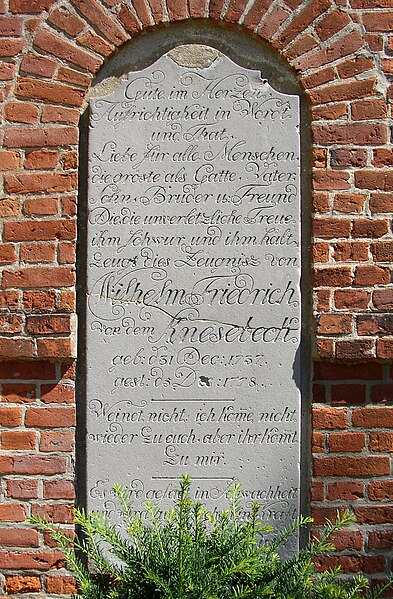 Güte im Herzen
Aufrichtigkeit in Wort
und That.
Liebe für alle Menschen.
die gröste als Gatte. Vater
Sohn. Bruder u: Freund
Die die unverletzliche Treue
ihm schwur und ihm hält
Zeugt dies Zeugnisz von
Wilhelm Friedrich
von dem Knesebeck
geb: d 31 Dec: 1737.
gest: d 5 Dec 1778.
Weinet nicht. ich kome nicht
wieder zu euch. aber ihr komt
zu mir.
Es wird gesaet in Schwachheit
und wird